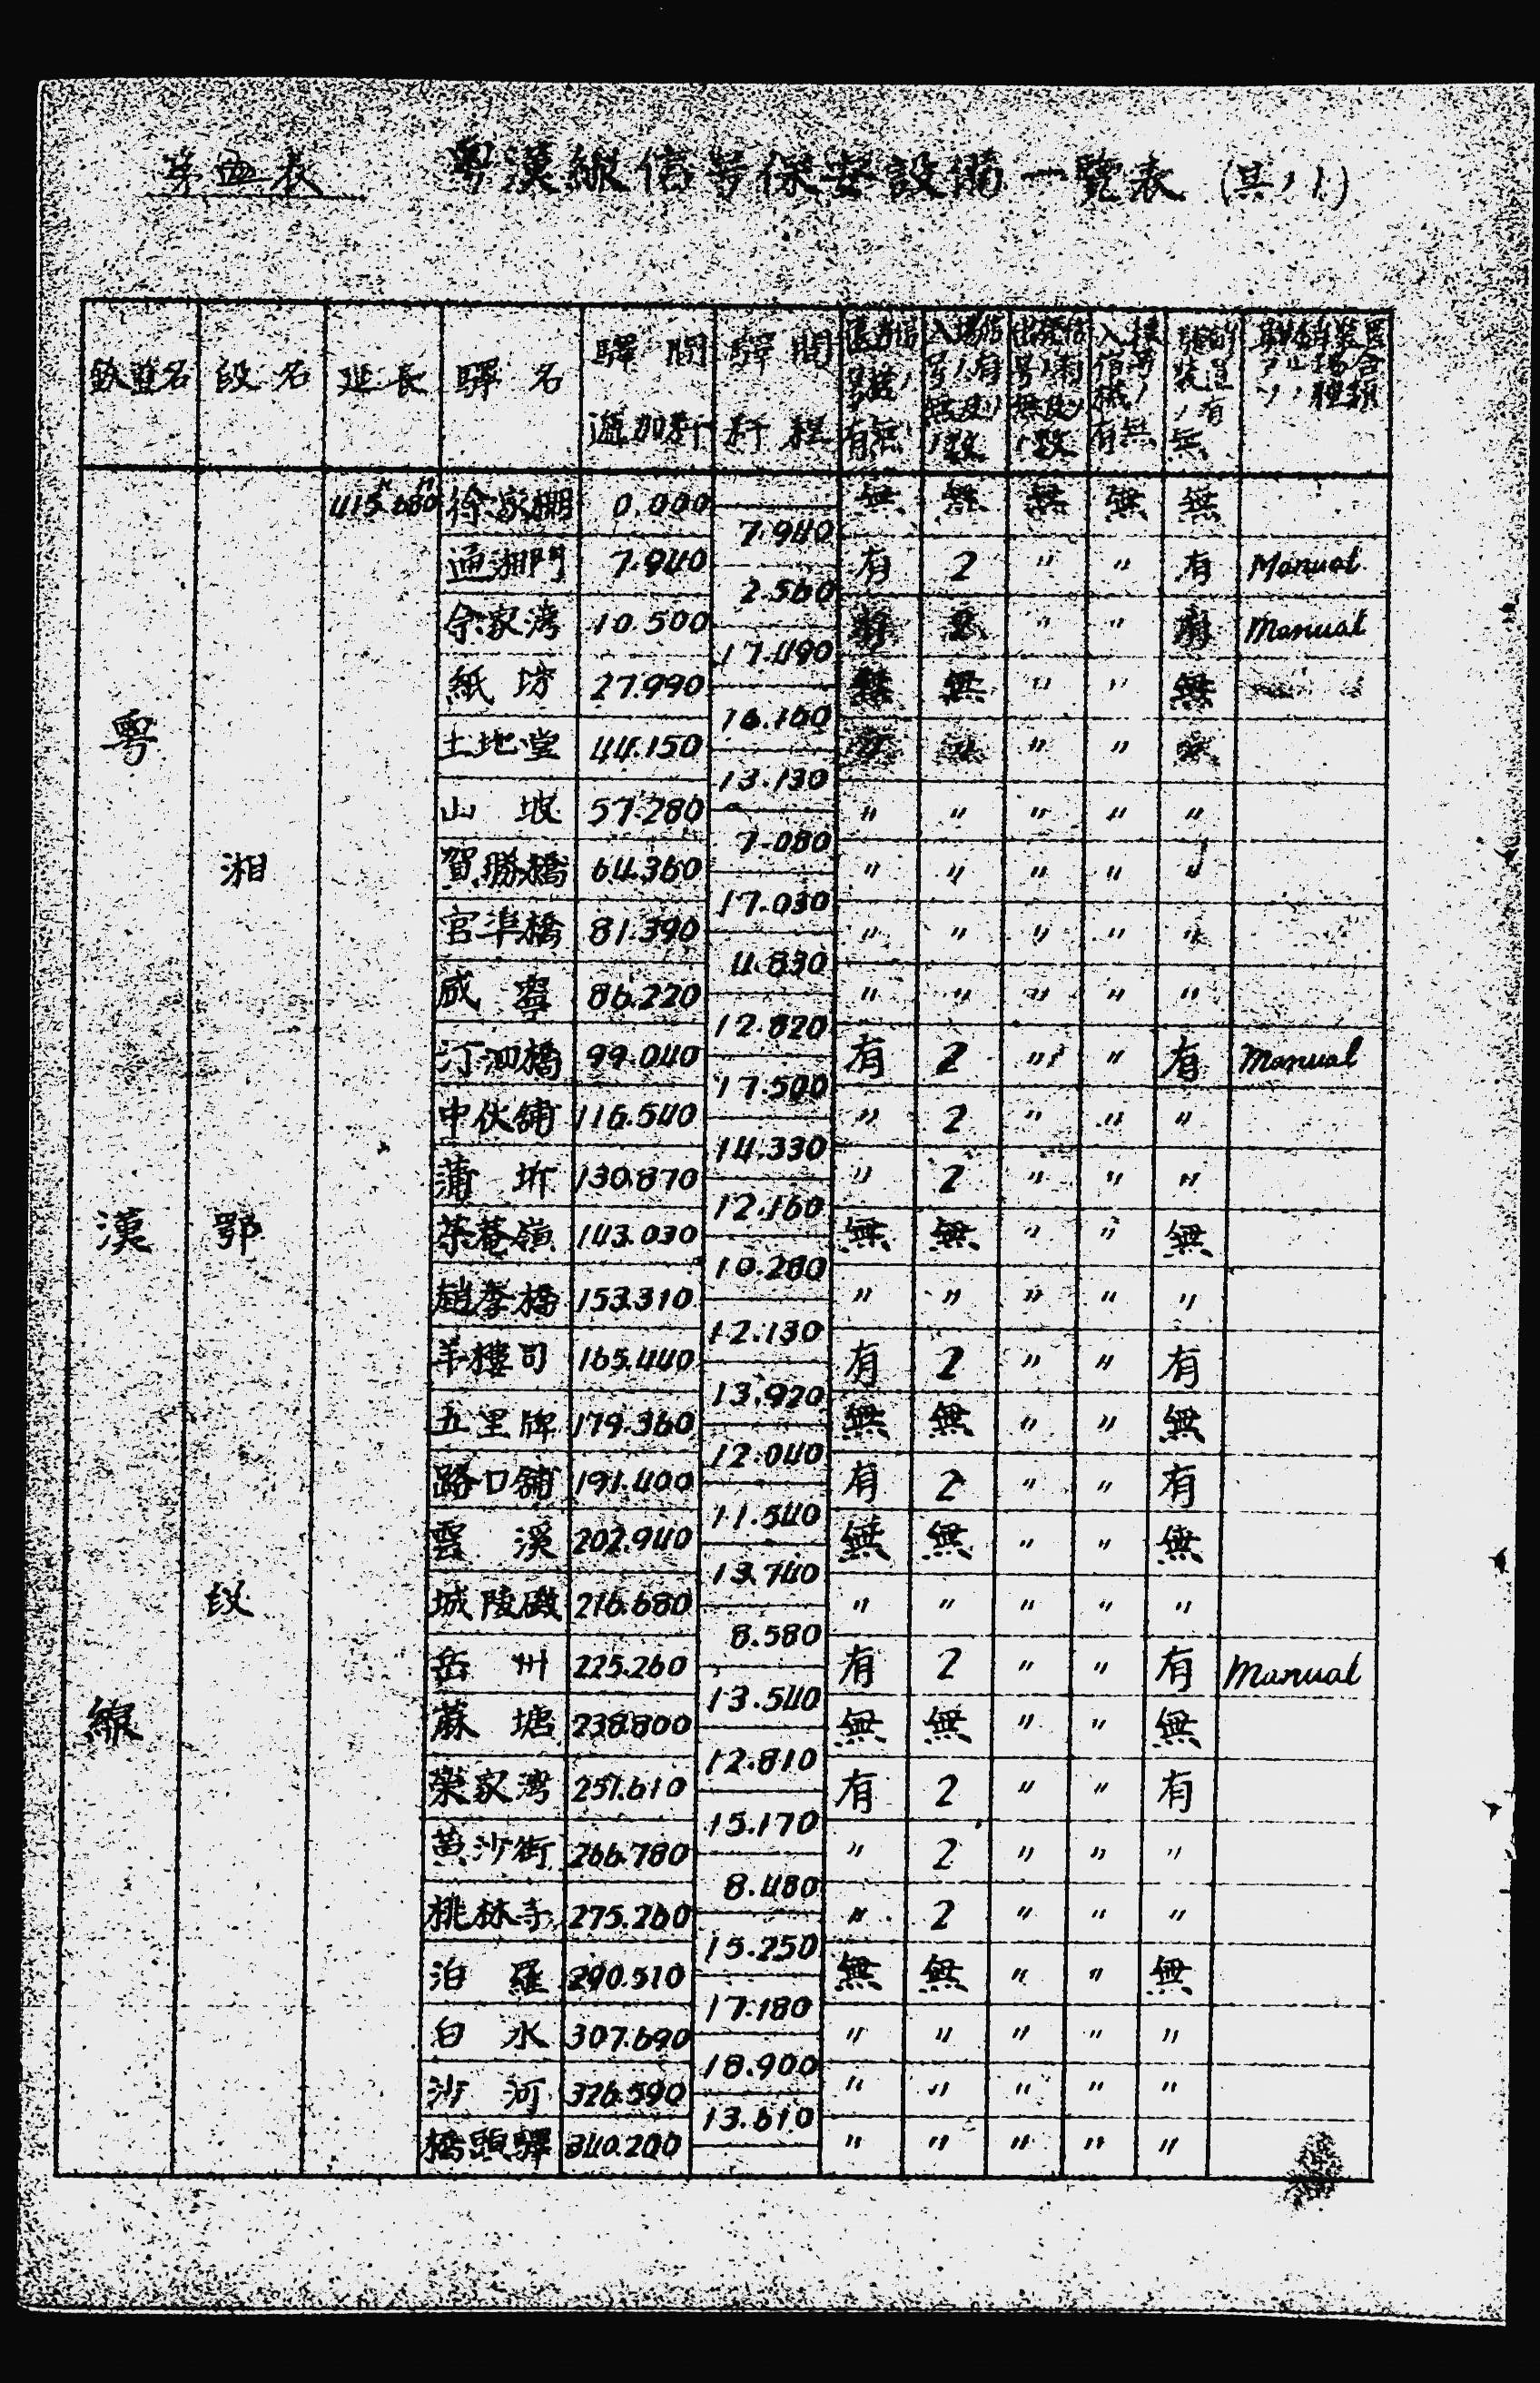 第四表 粵漢線信号保安設備一覽表 (其ノ1)
鉄道名 段名 延長 驛名 驛間逓加粁 驛間粁程 遠方信号機ノ有無 入場信号ノ有無及ノ数 出發信号ノ有無及ノ数 入換信号機ノ有無 聯動装置ノ有無 聯動装置アル場合ソノ種類
粵漢線 湘鄂段 415.680
徐家棚 0.000 無 無 無 無 無
7.940
通湘門 7.940 有 2 〃 〃 有 Manual
2.560
余家湾 10.500 有 2 〃 〃 有 Manual
17.490
紙坊 27.990 無 無 〃 〃 無
16.160
土地堂 44.150 〃 〃 〃 〃 〃
13.130
山坡 57.280 〃 〃 〃 〃 〃
7.080
賀勝橋 64.360 〃 〃 〃 〃 〃
17.030
官埠橋 81.390 〃 〃 〃 〃 〃
4.830
咸寧 86.220 〃 〃 〃 〃 〃
12.820
汀泗橋 99.040 有 2 〃 〃 有 Manual
17.500
中伙舖 116.540 〃 2 〃 〃 〃
14.330
蒲圻 130.870 〃 2 〃 〃 〃
12.160
茶菴嶺 143.030 無 無 〃 〃 無
10.280
趙李橋 153.310 〃 〃 〃 〃 〃
12.130
羊樓司 165.440 有 2 〃 〃 有
13.920
五里牌 179.360 無 無 〃 〃 無
12.040
路口舖 191.400 有 2 〃 〃 有
11.540
雲溪 202.940 無 無 〃 〃 無
13.740
城陵磯 216.680 〃 〃 〃 〃 〃
8.580
岳州 225.260 有 2 〃 〃 有 Manual
13.540
蔴塘 238.800 無 無 〃 〃 無
12.810
榮家湾 251.610 有 2 〃 〃 有
15.170
黄沙街 266.780 〃 2 〃 〃 〃
8.480
桃林寺 275.260 〃 2 〃 〃 〃
15.250
泊羅 290.510 無 無 〃 〃 無
17.180
白水 307.690 〃 〃 〃 〃 〃
18.900
沙河 326.590 〃 〃 〃 〃 〃
13.610
橋頭驛 340.200 〃 〃 〃 〃 〃